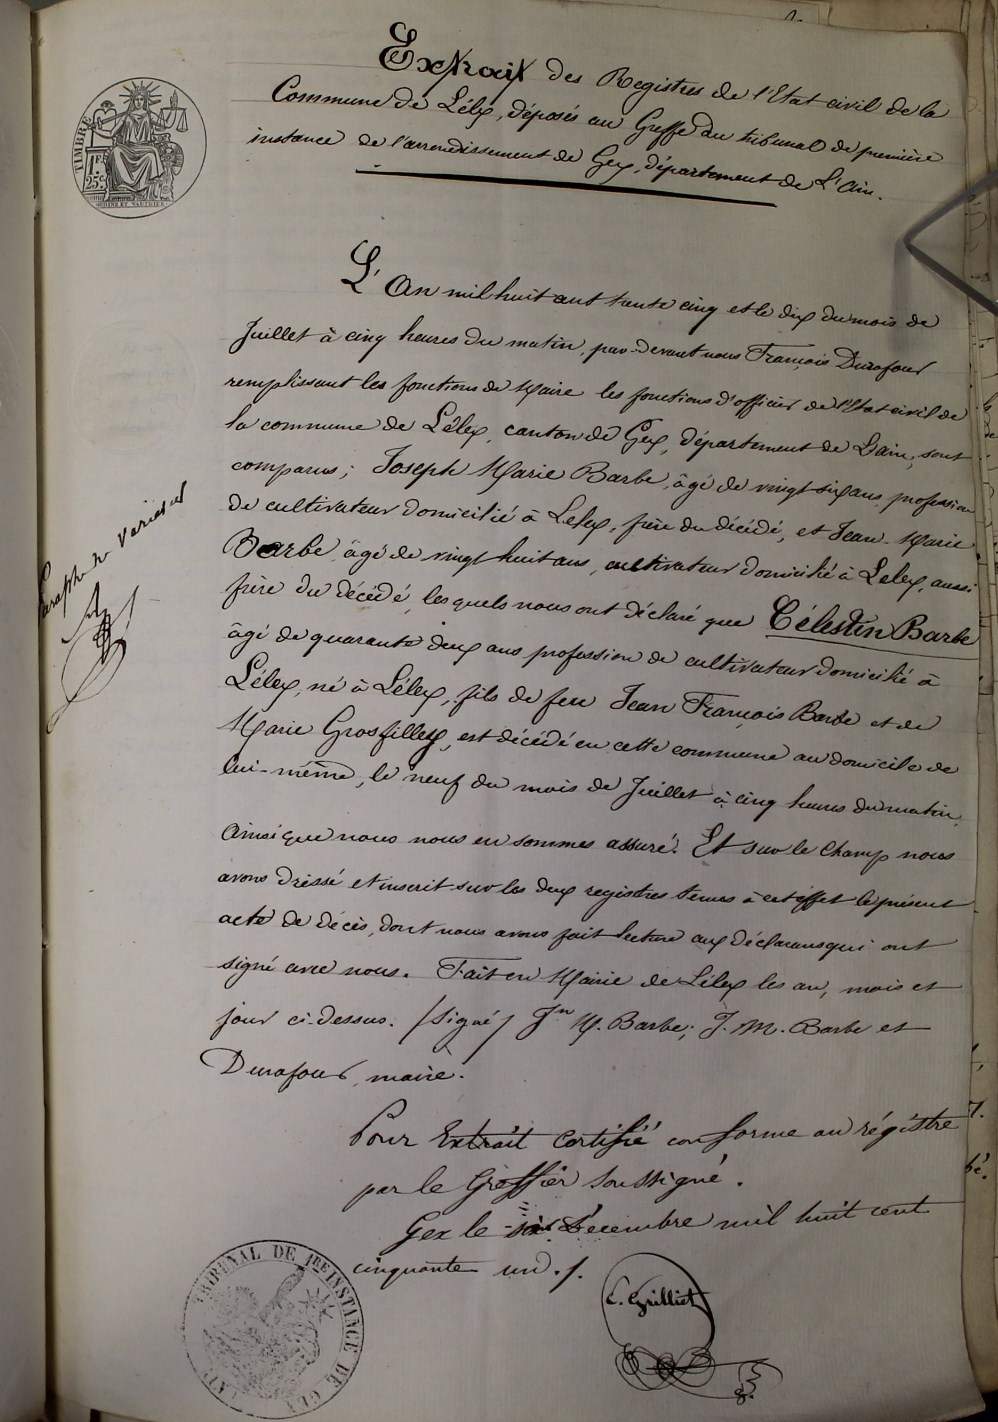 Extrait des Registres de l'Etat civil de la
Commune de Lélex, déposés au Greffe du tribunal de première
instance de l'arrondissement de Gex, département de L'Ain.
TIMBRE
1F.
25c.
L'An mil huit cent trente cinq et le dix du mois de
Juillet à cinq heures du matin, par-devant nous François Durafour
remplissant les fonctions de Maire les fonctions d'officier de l'Etat civil de
la commune de Lélex, canton de Gex, département de Lain, sont
comparus; Joseph Marie Barbe, âgé de vingt six ans profession
de cultivateur domicilié à Lelex, frère du décédé, et Jean-Marie
Barbe âgé de vingt huit ans, cultivateur domicilié à Lelex, aussi
frère du décédé, lesquels nous ont déclaré que Célestin Barbe
âgé de quarante deux ans profession de cultivateur domicilié à
Lélex, né à Lélex, fils de feu Jean François Barbe et de
Marie Grosfilley, est décédé en cette commune au domicile de
lui-même, le neuf du mois de Juillet à cinq heures du matin.
Ainsi que nous nous en sommes assuré. Et sur le champ nous
avons dressé et inscrit sur les deux registres tenus à cet effet le présent
acte de décès, dont nous avons fait lecture aux déclarans qui ont
signé avec nous. Fait en Mairie de Lélex les an, mois et
jour ci-dessus. /Signé/ Jn M. Barbe; J. M. Barbe et
Durafour, maire.
Paraphé ne varietur
Pour Extrait certifié conforme au régistre
par le Greffier soussigné.
Gex le six Décembre mil huit cent
cinquante un./.
TRIBUNAL DE 1RE INSTANCE DE GEX